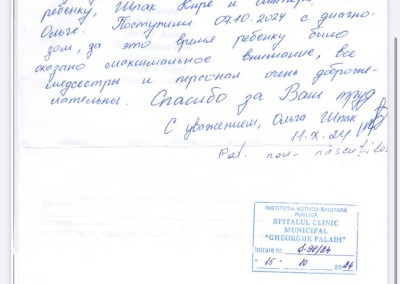 ребенку, Шпак Кире и матери
Ольге. Поступили 07.10.2024 с диагно-
зом, за это время ребенку было
оказано максимальное внимание, все
медсестры и персонал очень доброже-
лательны. Спасибо за Ваш труд
С уважением, Ольга Шпак
11.X.24
Pat. nou-născuților
INSTITUȚIA MEDICO-SANITARĂ
PUBLICĂ
SPITALUL CLINIC
MUNICIPAL
"GHEORGHE PALADI"
Intrare nr.
"15" 10 2024